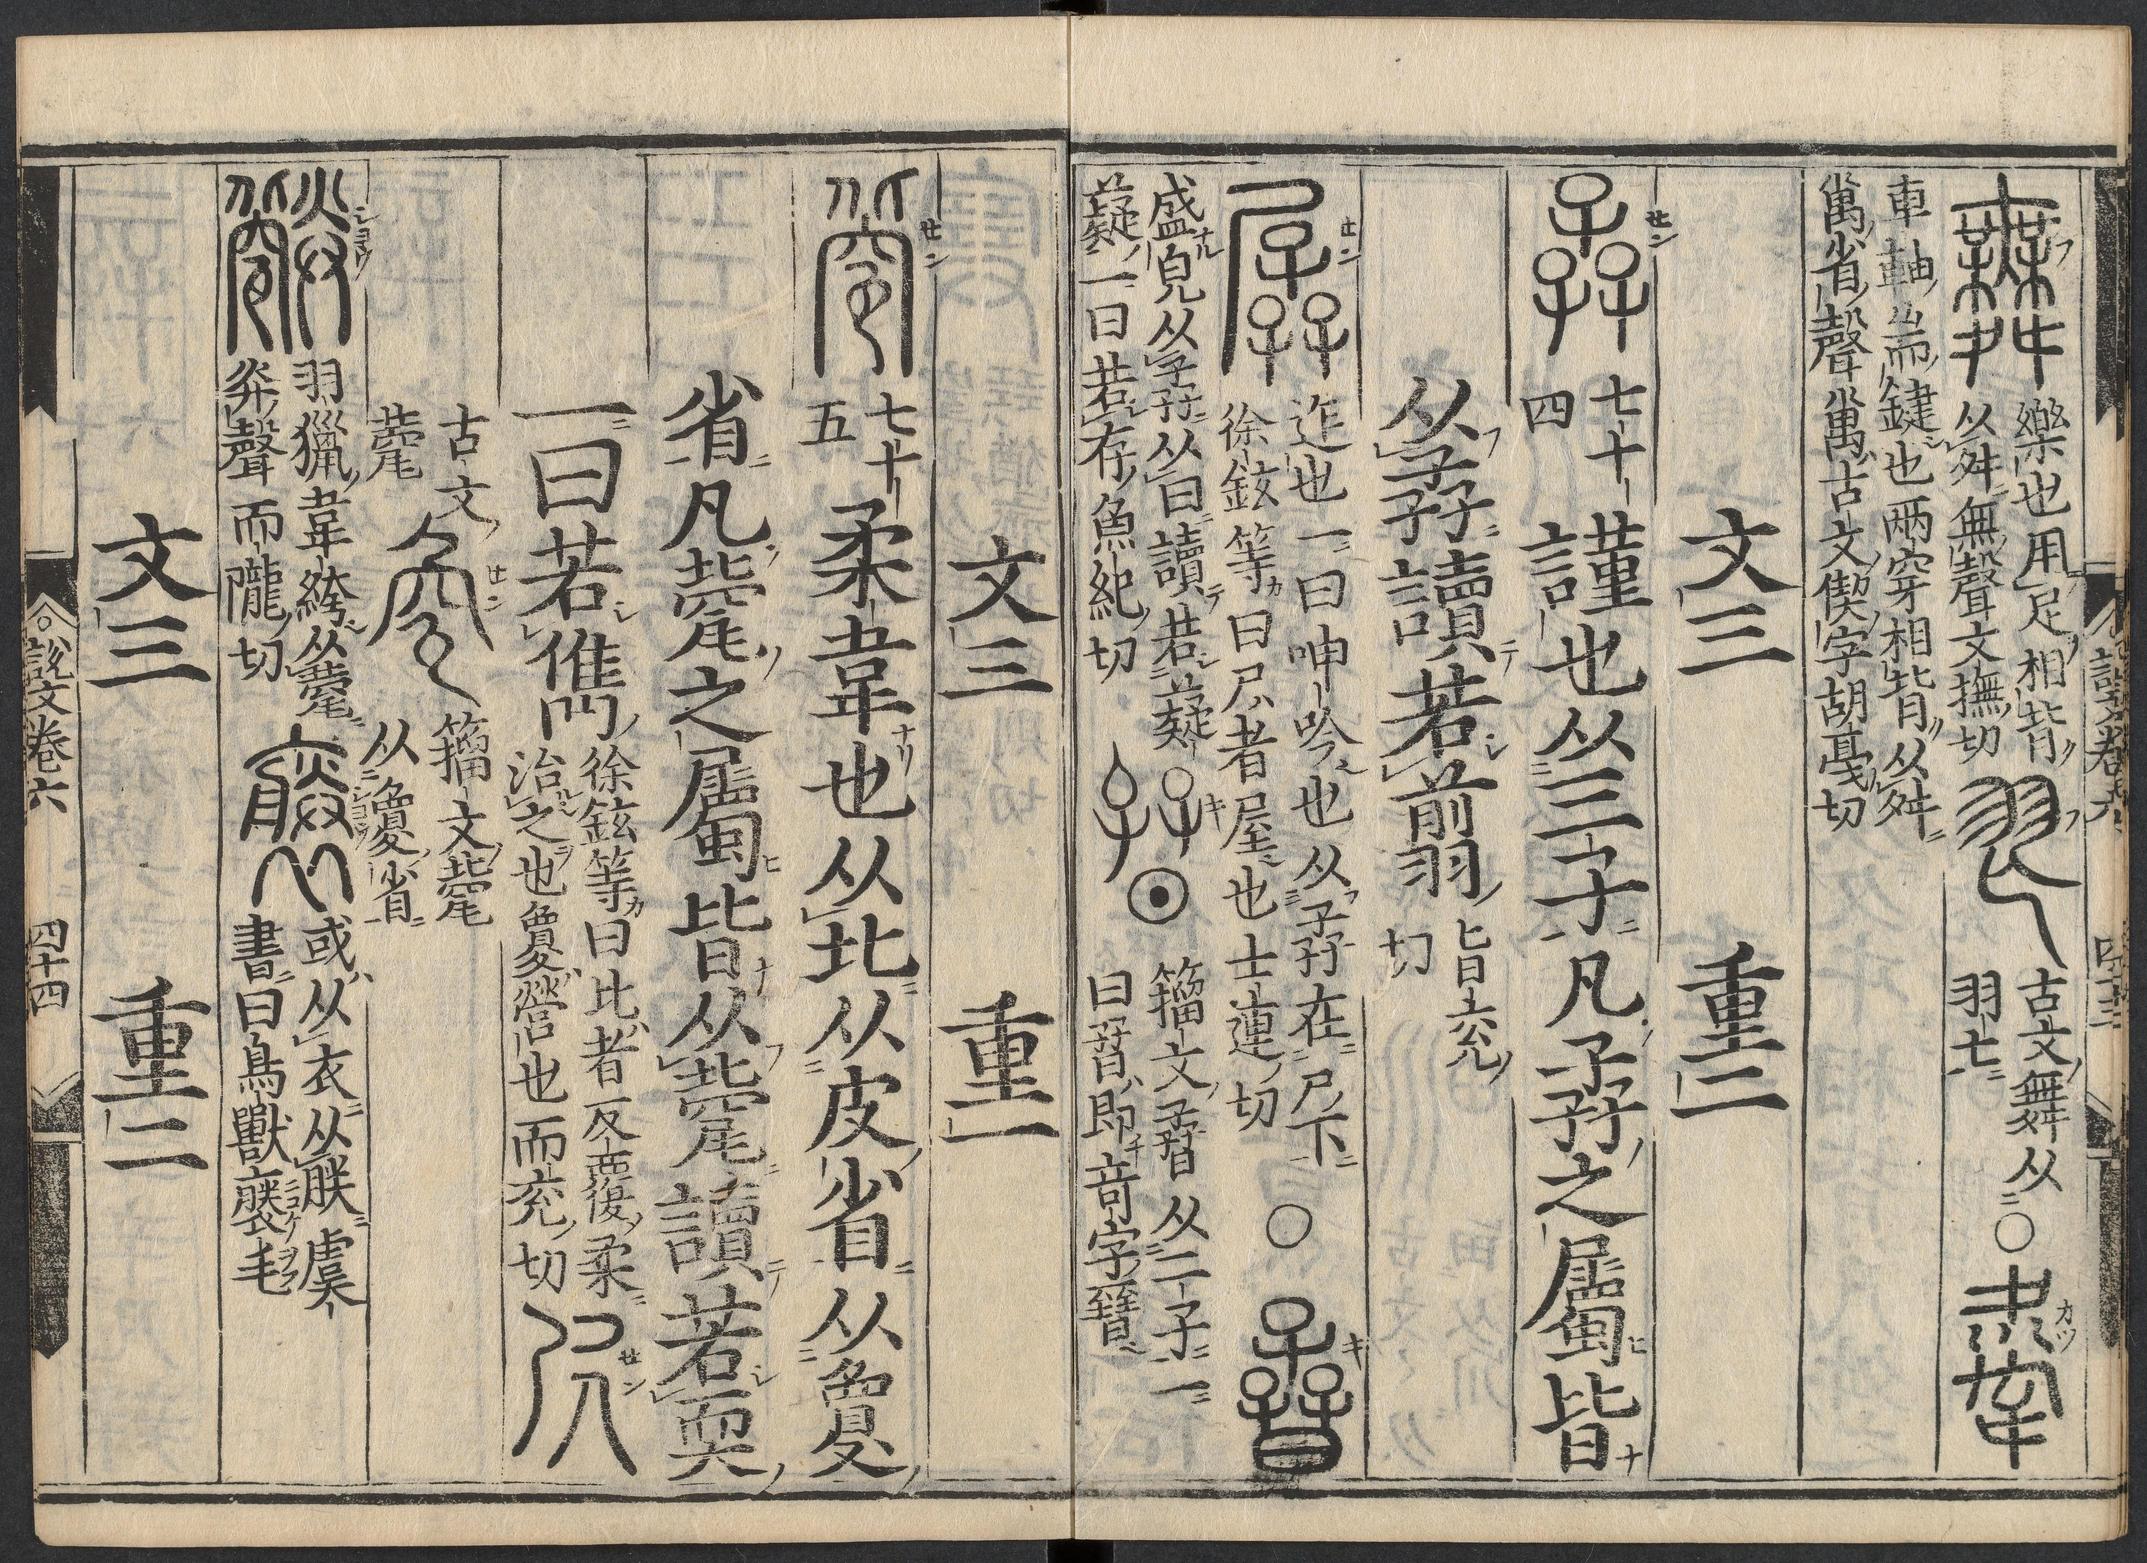 樂也用足相背
从舛無聲文撫切
古文舞从
羽亡
○
車軸耑鍵也两穿相背从舛
萬省聲萬古文偰字胡戞切
文三
重二
七十
四
謹也从三子凡孨之屬皆
从孨讀若翦
旨兖
切
迮也一曰呻吟也从孨在尸下
徐鉉等曰尸者屋也士連切
○
盛皃从孨从曰讀若薿
薿一曰若存魚紀切
籀文孴从二子一
曰孴即奇字㬜
文三
重一
七十
五
柔韋也从北从皮省从敻
省凡㼱之屬皆从㼱讀若耎
一曰若儁
徐鉉等曰北者反覆柔
治之也敻營也而兖切
古文
㼱
籀文㼱
从敻省
羽獵韋絝从㼱
灷聲而隴切
或从衣从朕虞
書曰鳥獸褭毛
文三
重二
說文卷六
四十四